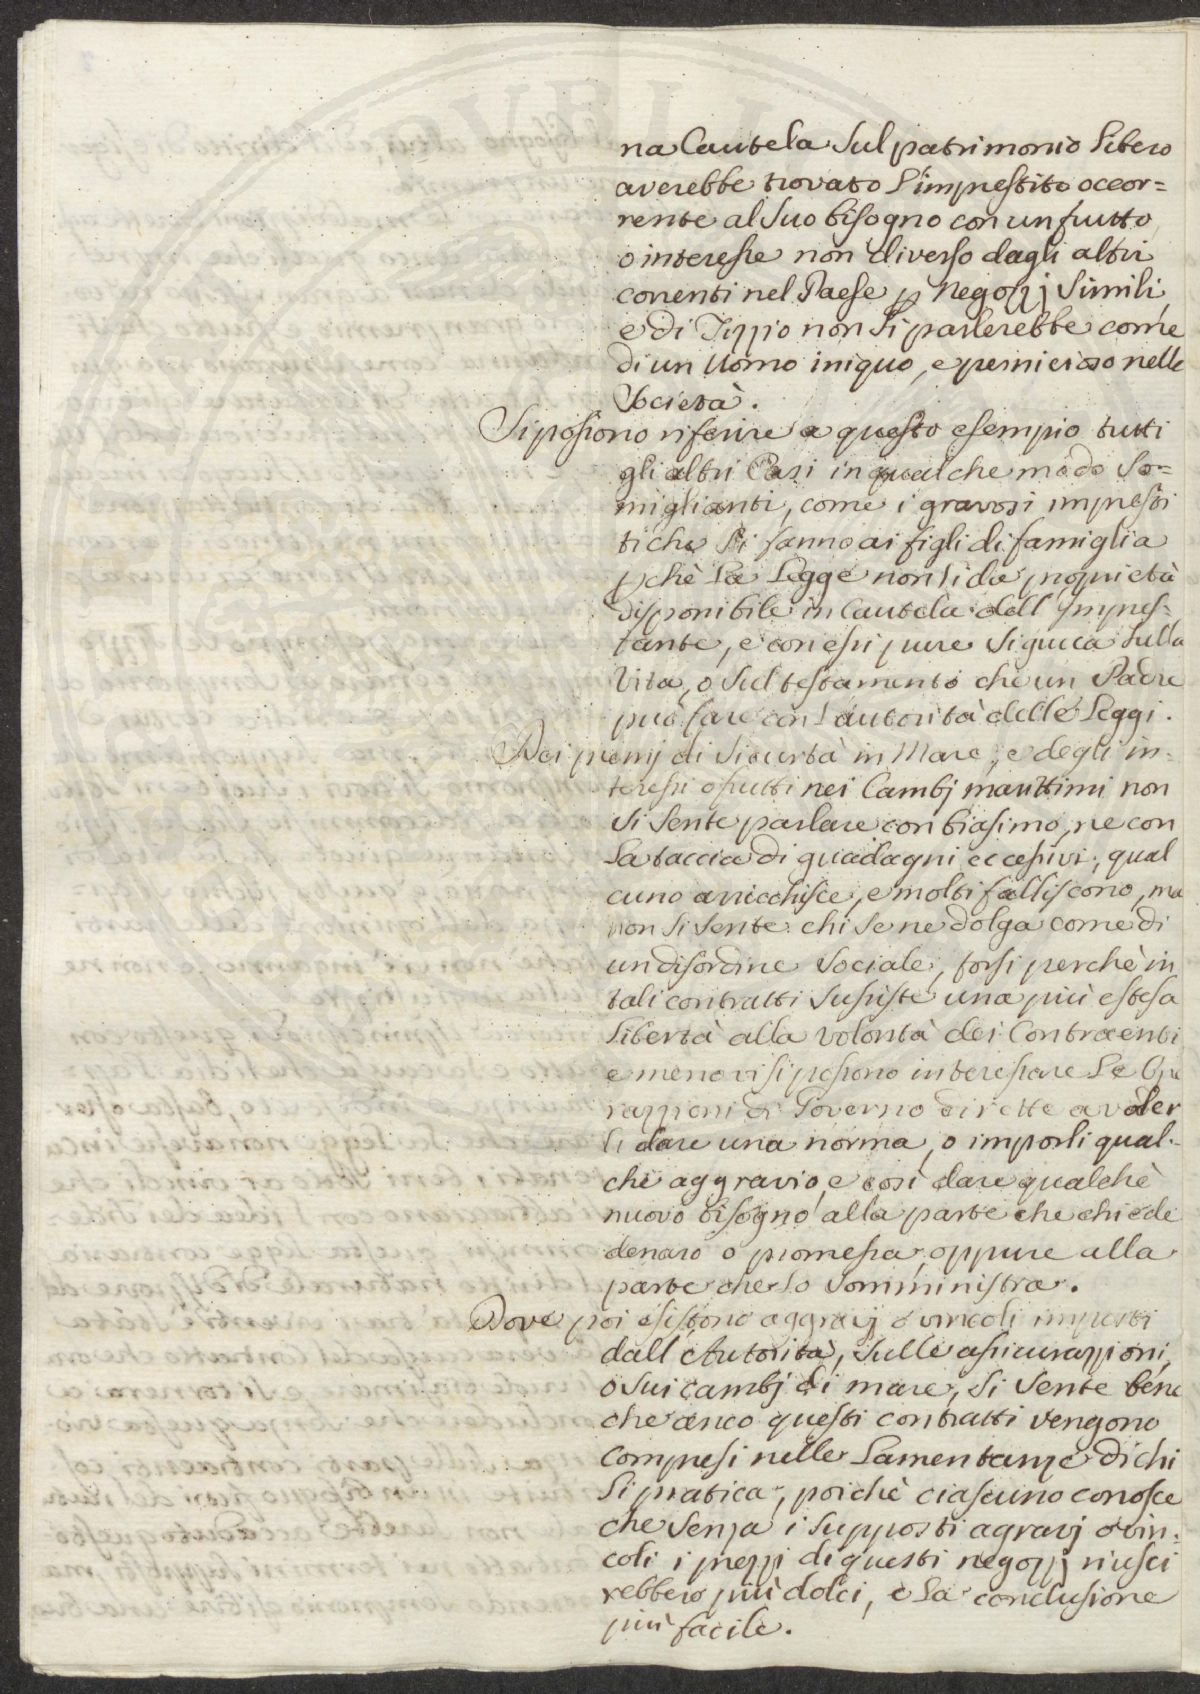 na Cautela sul patrimonio libero
averebbe trovato l'imprestito occor=
rente al suo bisogno con un frutto
o interesse non diverso dagli altri
correnti nel Paese p negozzj simili,
e di Tizzio non si parlerebbe come
di un Uomo iniquo, e pernicioso nella
Società.
Si possono riferire a questo esempio tutti
gli altri Casi in qualche modo so=
miglianti, come i gravosi impresti
ti che si fanno ai figli di famiglia
pchè la Legge non li dà proprietà
disponibile in Cautela dell' Impres=
tante, e con essi pure si giuca sulla
Vita, o sul testamento che un Padre
può fare con l'autorità delle Leggi.
Dei premj di sicurtà in Mare, e degli in=
teressi o frutti nei Cambj marittimi non
si sente parlare con biasimo, ne con
la taccia di guadagni eccessivi; qual
cuno arricchisce, e molti falliscono, ma
non si sente chi se ne dolga come di
un disordine sociale, forsi perchè in
tali contratti sussiste una più estesa
libertà alla volontà dei Contraenti
e meno vi si possono interessare le Ope
razzioni di Governo dirette a voler
li dare una norma, o imporli qual=
che aggravio, e così dare qualche
nuovo bisogno alla parte che chiede
denaro o promessa, oppure alla
parte che lo somministra.
Dove poi esistono aggravj o vincoli imposti
dall' Autorità, sulle assicurazzioni,
o sui cambj di mare, si sente bene
che anco questi contratti vengono
compresi nelle lamentanze di chi
li pratica, poichè ciascuno conosce
che senza i supposti agravj o vin=
coli i prezzi di questi negozzj riusci
rebbero più dolci, e la conclusione
più facile.